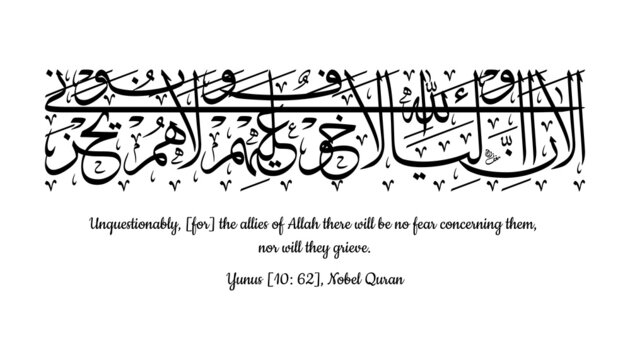 ألا إن أولياء الله لا خوف عليهم ولا هم يحزنون
Unquestionably, [for] the allies of Allah there will be no fear concerning them,
nor will they grieve.
Yunus [10: 62], Nobel Quran